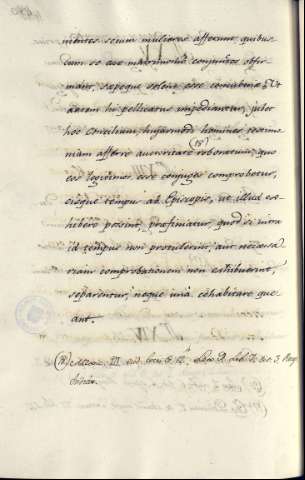 nientes secum mulieres afferunt, quibus
cum se aut matrimonio conjunctos affir
mant, sæpeque solent esse concubinæ. Ut
autem hi pellicatus impediantur, jubet
hoc Concilium, hujusmodi homines testimo
nium afferre auctoritate (18) roboratum, quo
eos legitimos esse conjuges comprobetur,
eisque tempus ab Episcopis, ut illud ex-
hibere possint, præfiniatur, quod si intra
id tempus non protulerint, aut necessa
riam comprobationem non exhibuerint,
separentur, neque unà cohabitare que
ant.
(18)